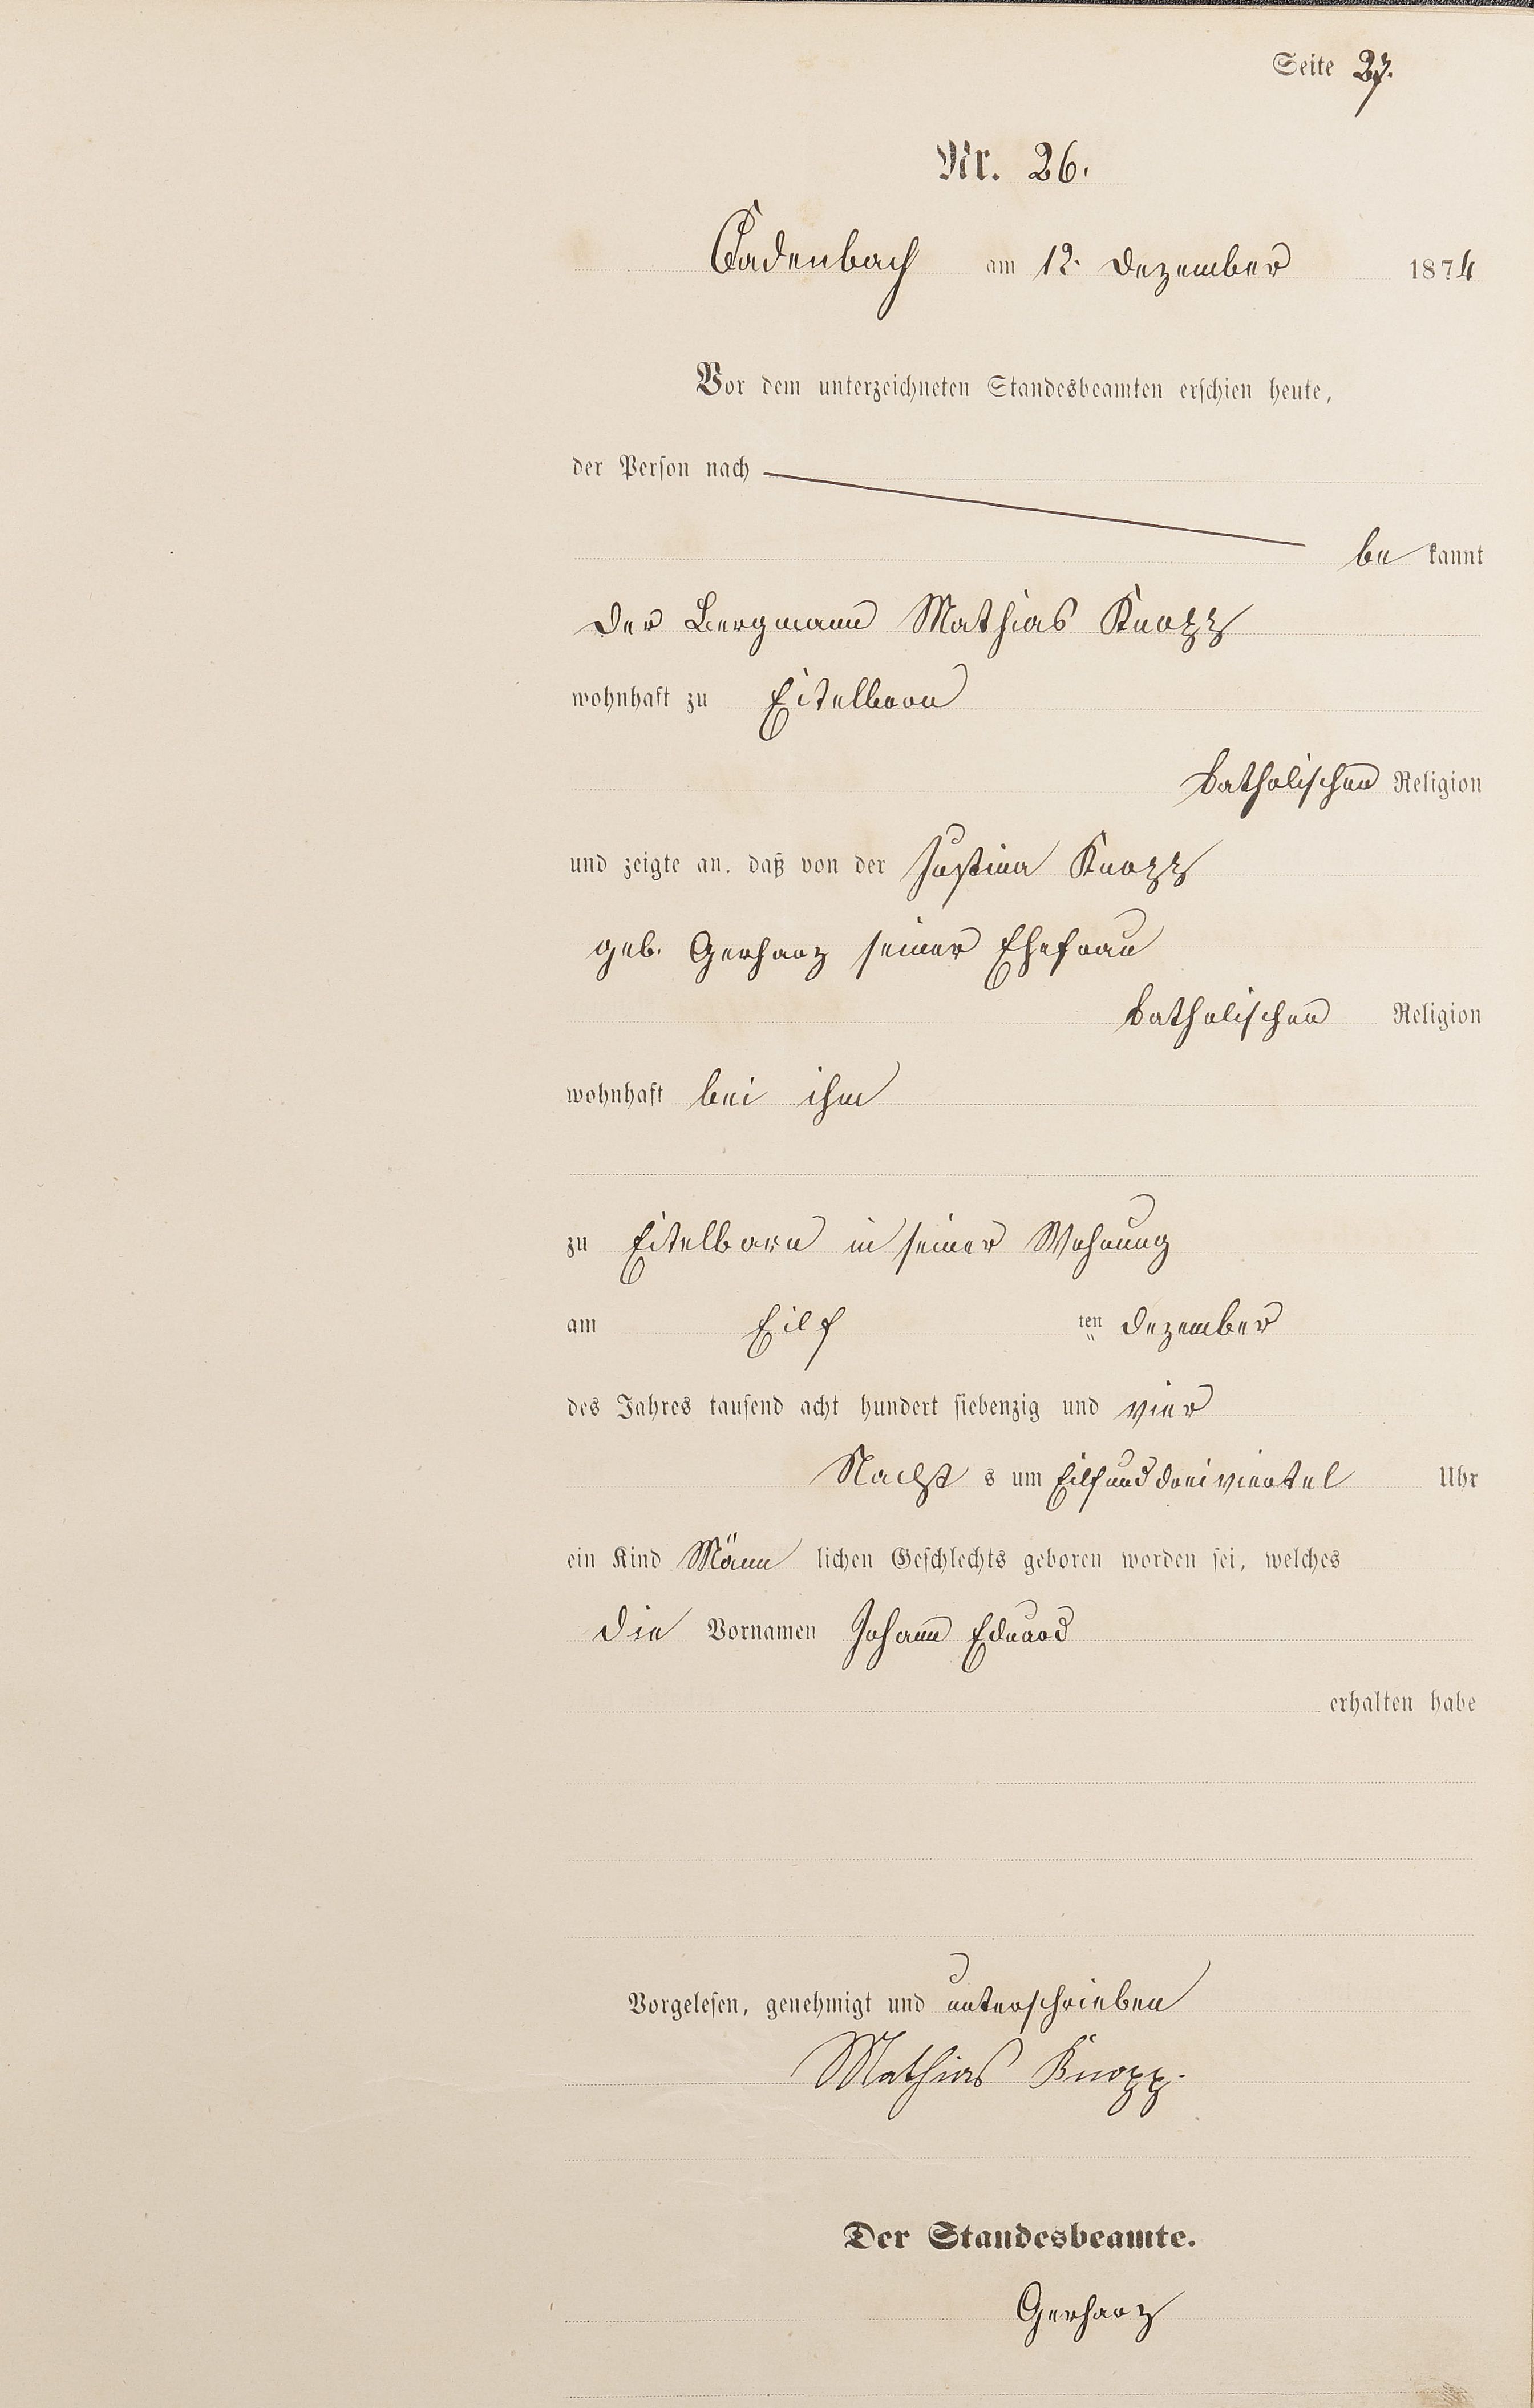 Seite 27.
Nr. 26.
Cadenbach am 12. Dezember 1874
Vor dem unterzeichneten Standesbeamten erschien heute,
der Person nach
be kannt
der Bergmann Mathias Knopp
wohnhaft zu Eitelborn
katholischen Religion
und zeigte an, daß von der Justina Knopp
geb. Gerharz seiner Ehefrau
katholischen Religion
wohnhaft bei ihm
zu Eitelborn in seiner Wohnung
am Eilf ten Dezember
des Jahres tausend acht hundert siebenzig und vier
Nachts s um Eilf und dreiviertel Uhr
ein Kind Männ lichen Geschlechts geboren worden sei, welches
die Vornamen Johann Eduard
erhalten habe
Vorgelesen, genehmigt und unterschrieben
Mathias Knopp.
Der Standesbeamte.
Gerharz